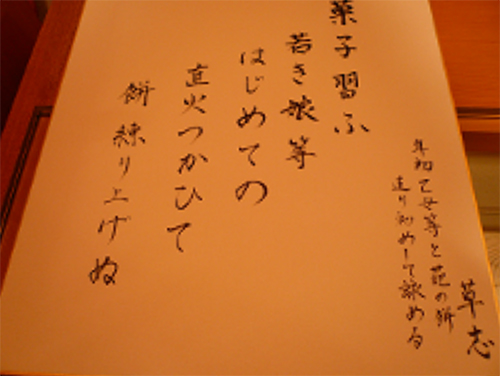 年初乙女等と葩の餅
造り初めして詠める
草志
菓子習ふ
若き娘等
はじめての
直火つかひて
餅練り上げぬ